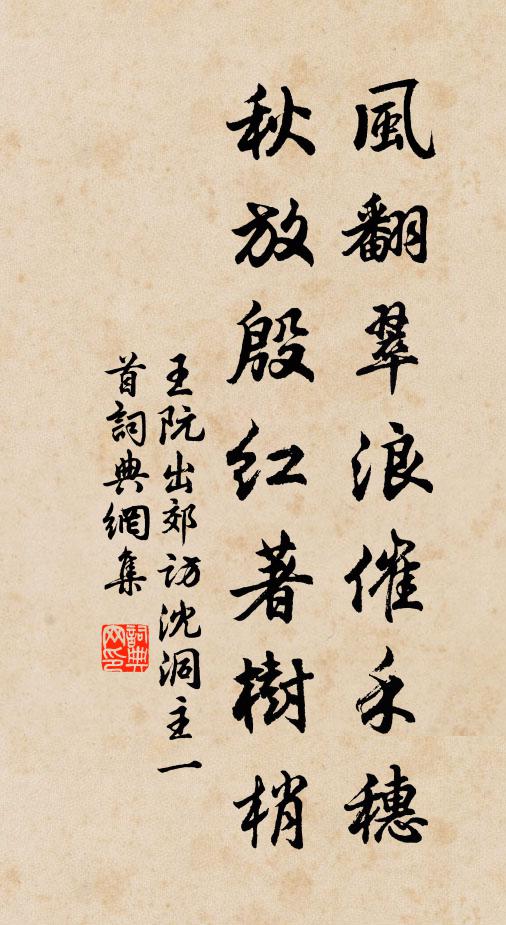 風翻翠浪催禾穗
秋放殷紅著樹梢
王阮出郊訪沈洞主一
首詞典網集
詞典
网印